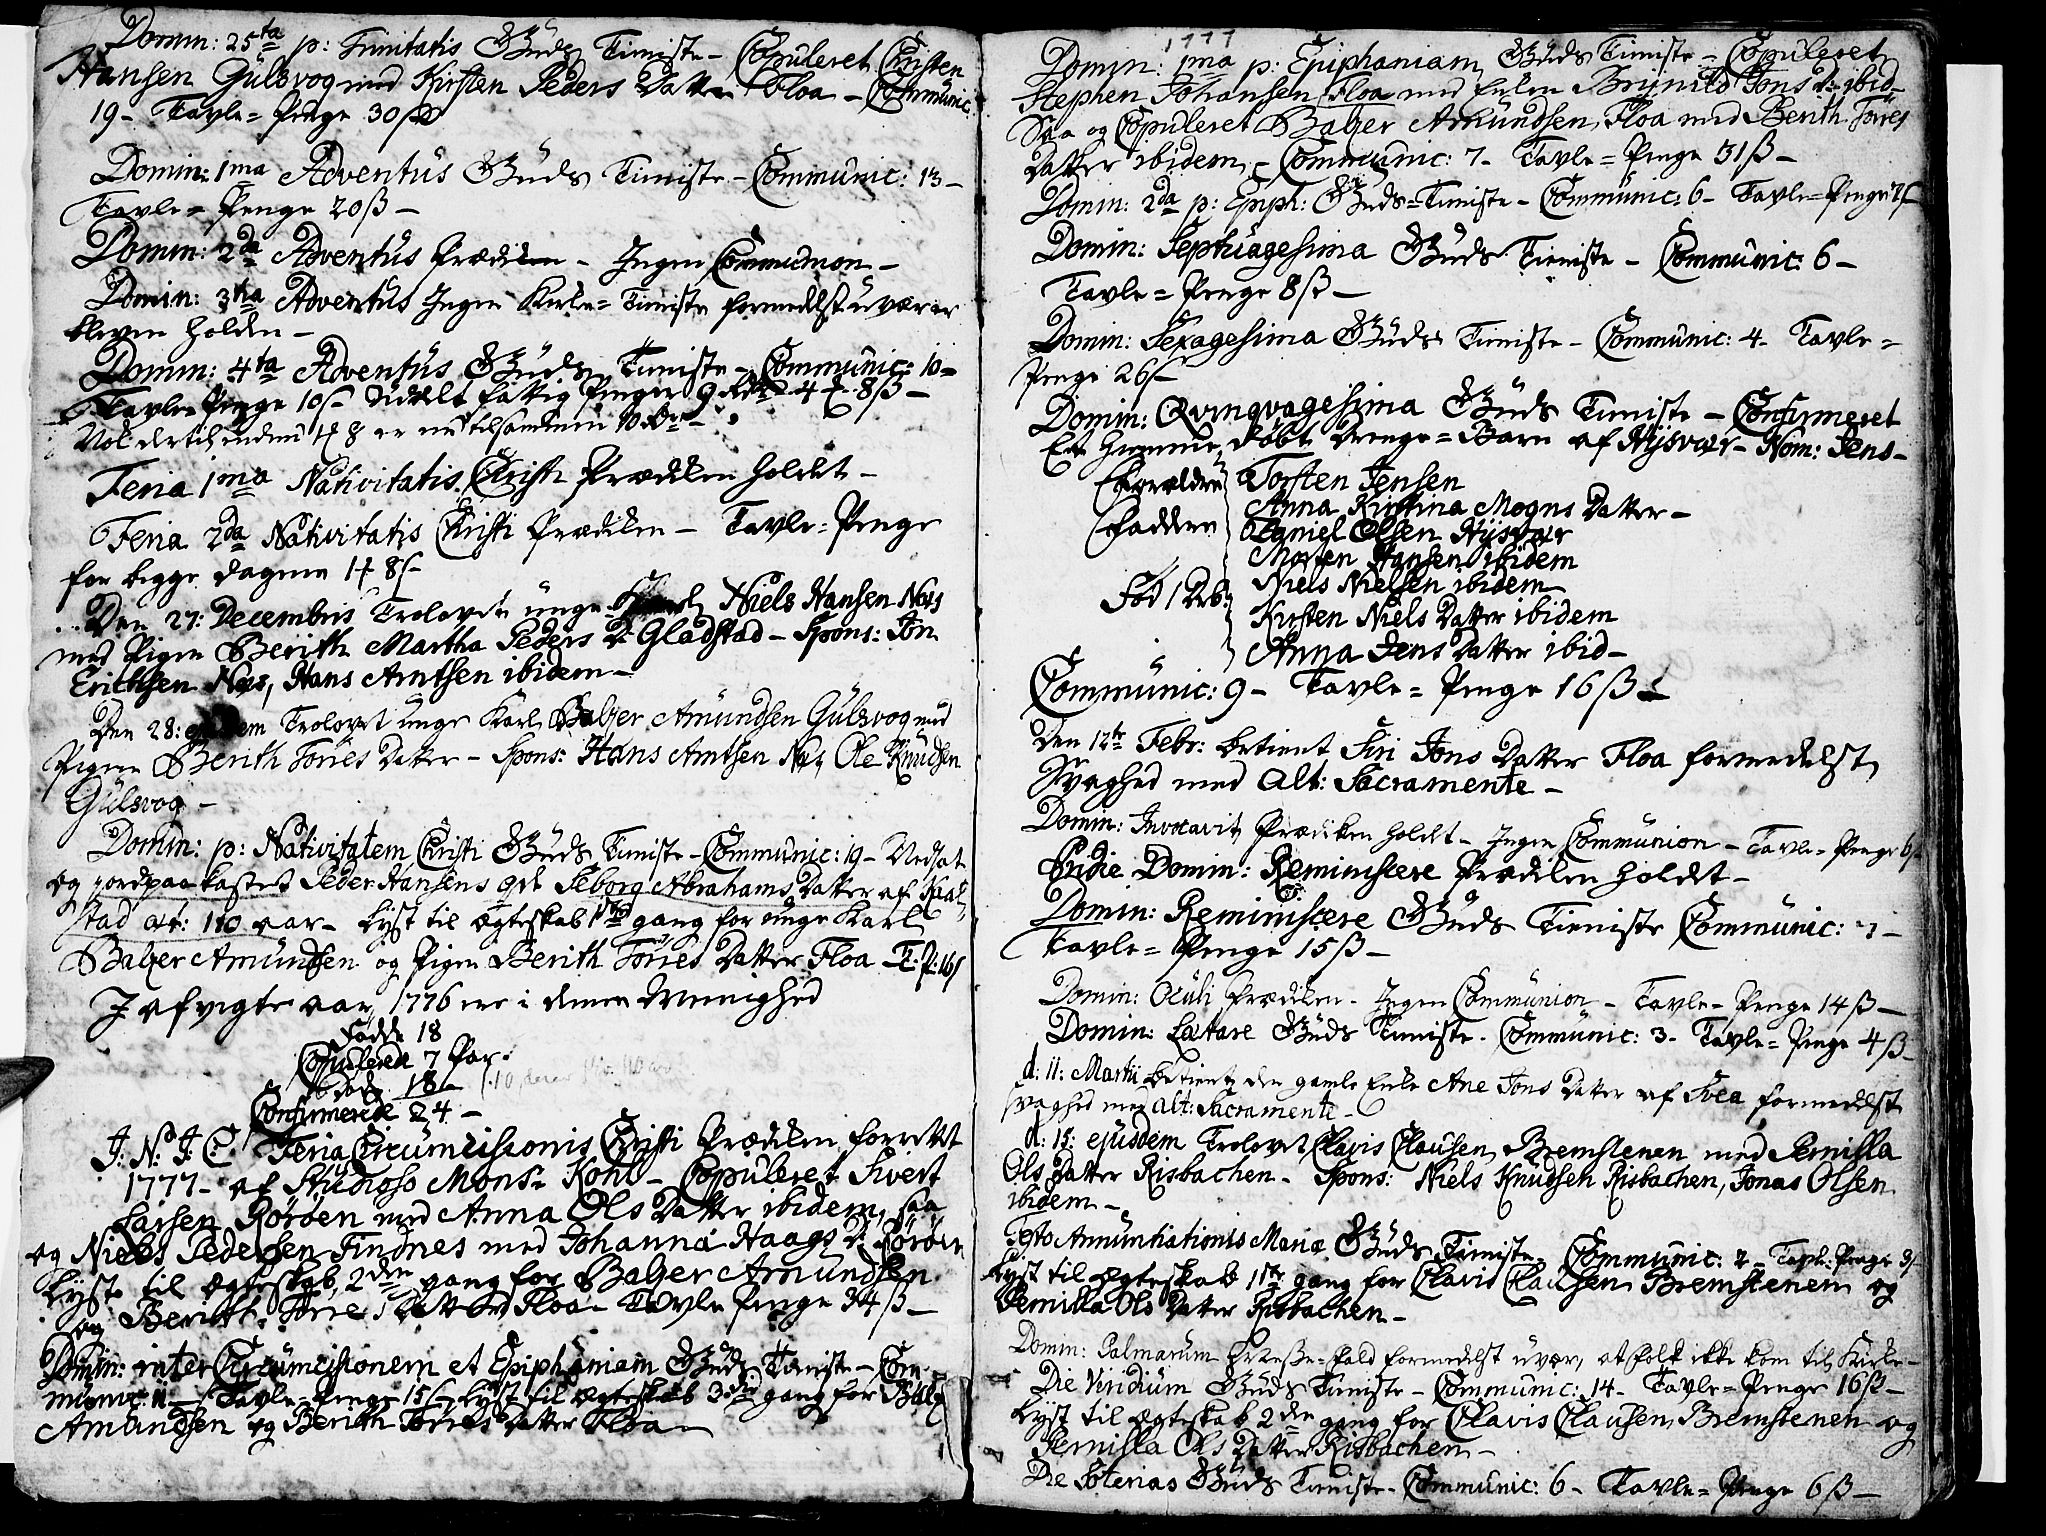 Domin: 25ta p: Trinitatis Guds Tieniste - Copuleret Christen
Hansen Gülsvog med Kirsten Peders Datter Floa - Communic
19 - Tavle=Penge 30 ß
Domin: 1ma Adventüs Guds Tieniste - Communic: 13 -
Tavle=Penge 20 ß -
Domin: 2da Adventüs Prædiken - Ingen Communion -
Domin: 3tia Adventüs Ingen Kirke=Tieniste formedelst uvær er
bleven holden -
Domin: 4ta Adventüs Guds Tieniste - Communic: 10 -
Tavle=Penge 10 ß uddelt fattig Penger 9 4 8 ß -
er nu tilsammen 10
Feria 1ma Nativitatis Christi Prædiken holdet -
Feria 2da Nativitatis Christi Prædiken - Tavle=Penge
for begge dagene 8 ß -
Den 27: Decembris Trolovet unge Karl Niels Hansen Næs
med Pigen Berith Martha Peders D: Gladstad - Spons: Jon
Erichsen Næs, Hans Arntsen ibidem -
Den 28: ejusdem Trolovet unge Karl Balzer Amündsen Gülsvog med
Pigen Berith Torres Datter - Spons: Hans Arntsen Næs, Ole Knudsen
Gülsvog -
Domin: p: Nativitatem Christi Guds Tieniste - Communic: 19 - Nedsat
og jordpaakastet Peder Hansens Seborg Abrahams Datter af
stad æt: 110 aar - Lyst til Ægteskab 1ste gang for unge Karl
Balzer Amündsen og Pigen Berith Torres Datter Floa - T: P: 16 ß
I afvigte aar 1776 ere i denne Menighed
Fødde 18
Copulered 7 Par
Døde 18 -
Confirmerede 24 -
J: N: J: C: Feria Circumcisionis Christi Prædiken forrettet
1777 - af Studioso Monsr Kohl - Copuleret Sivert
Larsen Röröen med Anna Ols Datter ibidem, saa
og Niels Pedersen Tindnes med Johanna Haags D: Röröen
Lyst til Ægteskab 2den gang for Balzer Amündsen
og Berith Torres Datter Floa - Tavle Penge 34 ß -
Domin: inter Circumcisionem et Epiphaniam Guds Tieniste - Com-
munic: 11 - Tavle=Penge 15 ß Lyst til Ægteskab 3die gang for Balz
Amündsen og Berith Torres Datter Floa -
1777
Domin: 1ma p: Epiphaniam Guds Tieniste - Copuleret
Stephen Johansen Floa med Enken Brynild Jons D: ibid -
Saa og Copuleret Balzer Amündsen Floa med Berith Torres
Datter ibidem - Communic: 7 - Tavle=Penge 31 ß -
Domin: 2da p: Epiph: Guds=Tieniste - Communic: 6 - Tavle=Penge
Domin: Septuagesima Guds Tieniste - Communic: 6 -
Tavle=Penge 8 ß -
Domin: Sexagesima Guds Tieniste - Communic: 4 - Tavle=
Penge 26 ß
Domin: Qvinqvagesima Guds Tieniste - Confirmeret
Et hiemme døbt Drenge=Barn af Hysvær - Nom: Jens -
Forældre Torsten Jensen
Anna Kirstina Mogns Datter -
Faddere Daniel Olsen Hysvær
Morten Hansen ibidem
Fød 1 Niels Nielsen ibidem
Kirsten Niels Datter ibidem
Anna Jens Datter ibid -
Communic: 9 - Tavle=Penge 16 ß -
Den 12te Febr: betient Siri Jons Datter Floa formedelst
Svaghed med Alt: Sacramente -
Domin: Invocavit Prædiken holdt - Ingen Communion - Tavle=Penge 6 ß
Pridie Domin: Reminiscere Prædiken holdet -
Domin: Reminiscere Guds Tieniste Communic: 7 -
Tavle=Penge 15 ß -
Domin: Oculi Prædiken - Ingen Communion - Tavle=Penge 14 ß -
Domin: Lætare Guds Tieniste - Communic: 3 - Tavle=Penge 4 ß -
d: 11: Martii betient den gamle Enke Ane Jons Datter af Svea formedelst
svaghed med Alt: Sacramente -
d: 15: ejusdem Trolovet Clavis Clausen Bremstenen med Pernilla
Ols Datter Risbachen - Spons: Niels Knüdsen Risbachen, Jonas Olsen
ibidem -
Festo Annuntiationis Mariæ Guds Tieniste - Communic: 2 - Tavle=Penge 3 ß
Lyst til Ægteskab 1ste gang for Clavis Clausen Bremstenen og
Pernilla Ols Datter Risbachen -
Domin: Palmarum Messe=Fald formedelst uvær, at folk ikke kom til Kirke -
Die Viridium Guds Tieniste - Communic: 14 - Tavle=Penge 16 ß -
Lyst til Ægteskab 2den gang for Clavis Clausen Bremstenen og
Pernilla Ols Datter Risbachen -
Die Soterias Guds Tieniste - Communic: 6 - Tavle=Penge 6 ß -